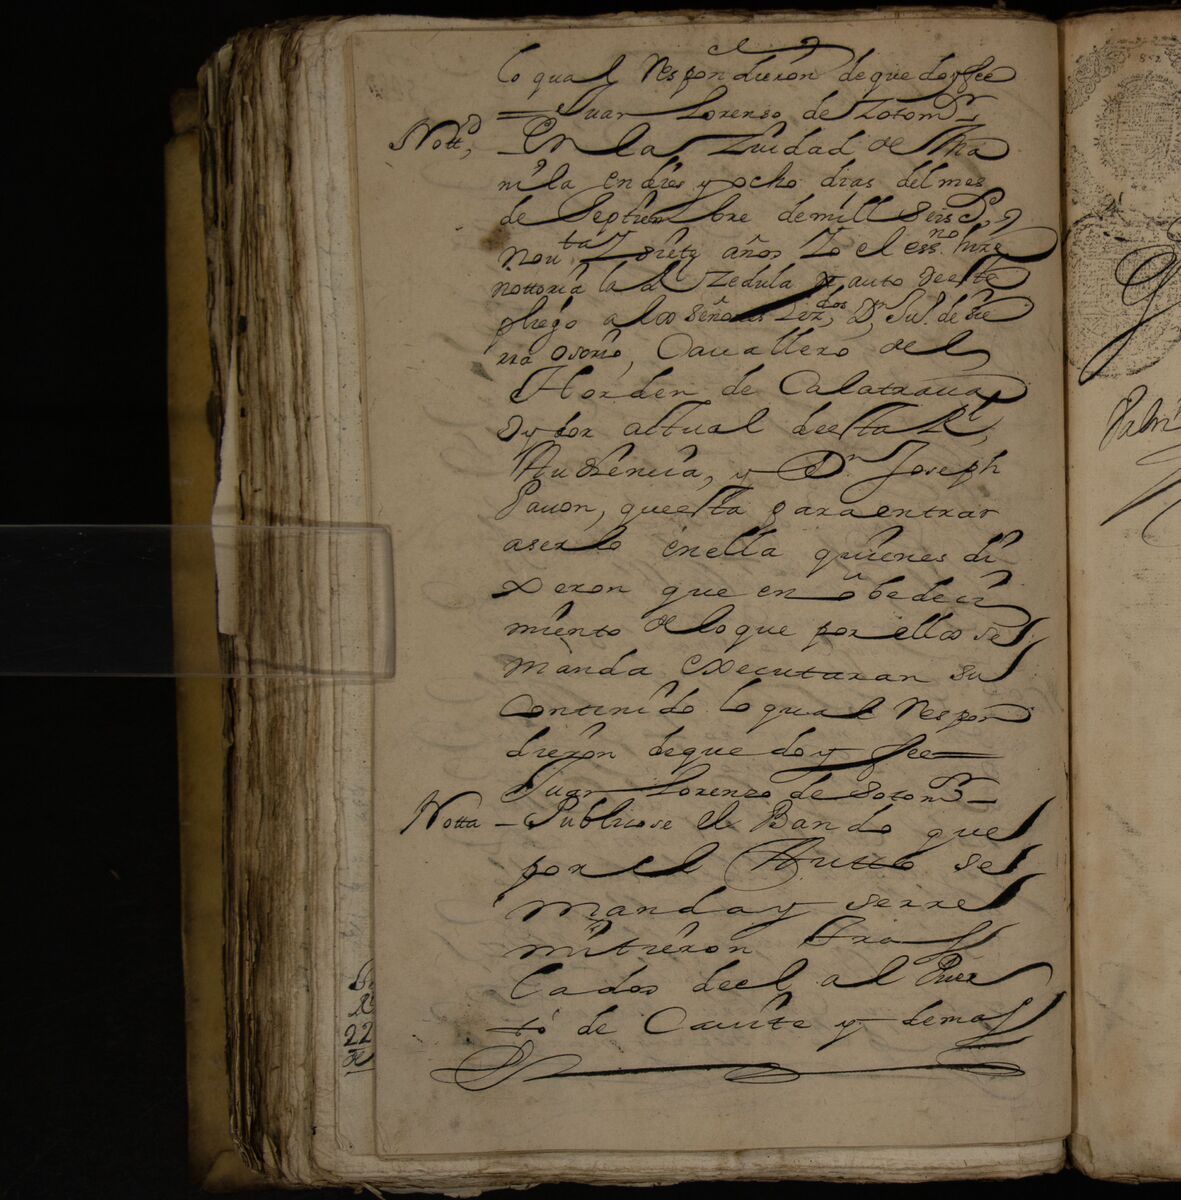 lo qual Respondieron de que doy fee
= Juan Lorenso de Zotomr
Nottn, - En la Zuidad de Ma
nila en dies y ocho dias del mes
de septiembre de mill seis Ss
nouta Y siete años Yo el essno hize
nottoria la Rl Zedula y auto deeste
pliego a los señores Lizdos, Dn Jul. de sie
rra osorio, Cauallero del
Horden de Calatraua
Oydor actual deesta Rl,
Audiencia, y Dn. Joseph
Pauon, que esta para entrar
aserlo en ella quienes di
xeron que en obedeci
miento de lo que por ellos se
manda executaran su
contenido lo qual Respon
dieron de que doy fee =
Juan Lorenzo de Sotomr -
Notta - Publicose el Bando que
por el Autto se
manda y serre
mitieron tras
lados de el al Puer
to de Cauite y demas
22